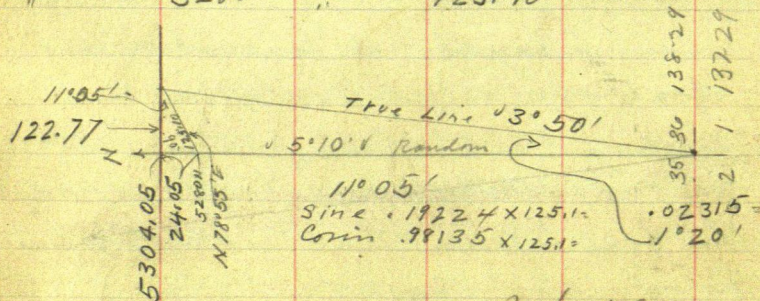 11°05'
122.77
N
5304.05
24.05
5280.11
N78°55'E
125.10
True Line 3°50'
5°10' Random
11°05'
Sine .19224 X 125.1=
Cosin .98135 X 125.1=
.02315=
1°20'
35 36 138-29
2 1 137-29